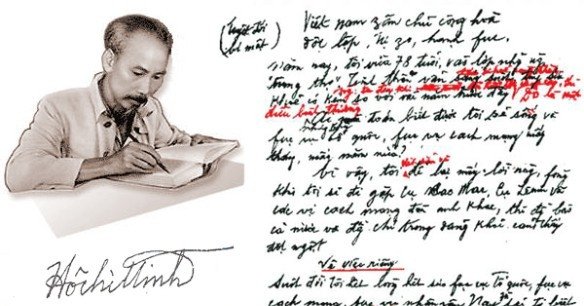 Hồ Chí Minh
(Tuyệt đối
bí mật)
Việt nam zân chủ cộng hoà
độc lập, tự zo, hạnh fúc
Năm nay, tôi vừa 78 tuổi, vào lớp những
"trung thọ". Tinh thần vẫn sáng suốt
khoẻ có kém so với vài năm trước đây Đó là một
điều bình thường
biết được tôi sẽ sống và
fục vụ tổ quốc, fục vụ cách mạng mấy
tháng, mấy năm nữa?
Vì vậy, tôi để lại mấy lời này, fòng
khi tôi sẽ đi gặp cụ Mác, cụ Lênin và
các vị cách mạng đàn anh khác, thì đồng bào
cả nước và đồng chí trong đảng khỏi cảm thấy
đột ngột
Về việc riêng
Suốt đời tôi hết lòng hết sức fục vụ Tổ quốc, fục vụ
cách mạng, fục vụ nhân dân. Nay